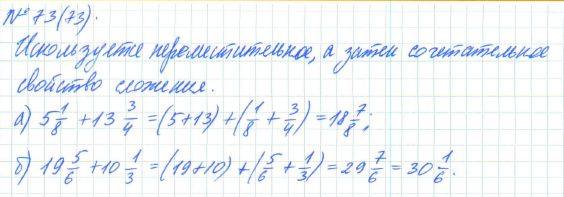 № 73(73).
Используется переместительное, а затем сочетательное
свойство сложения.
а) 5 1/8 + 13 3/4 = (5+13) + (1/8 + 3/4) = 18 7/8;
б) 19 5/6 + 10 1/3 = (19+10) + (5/6 + 1/3) = 29 7/6 = 30 1/6.